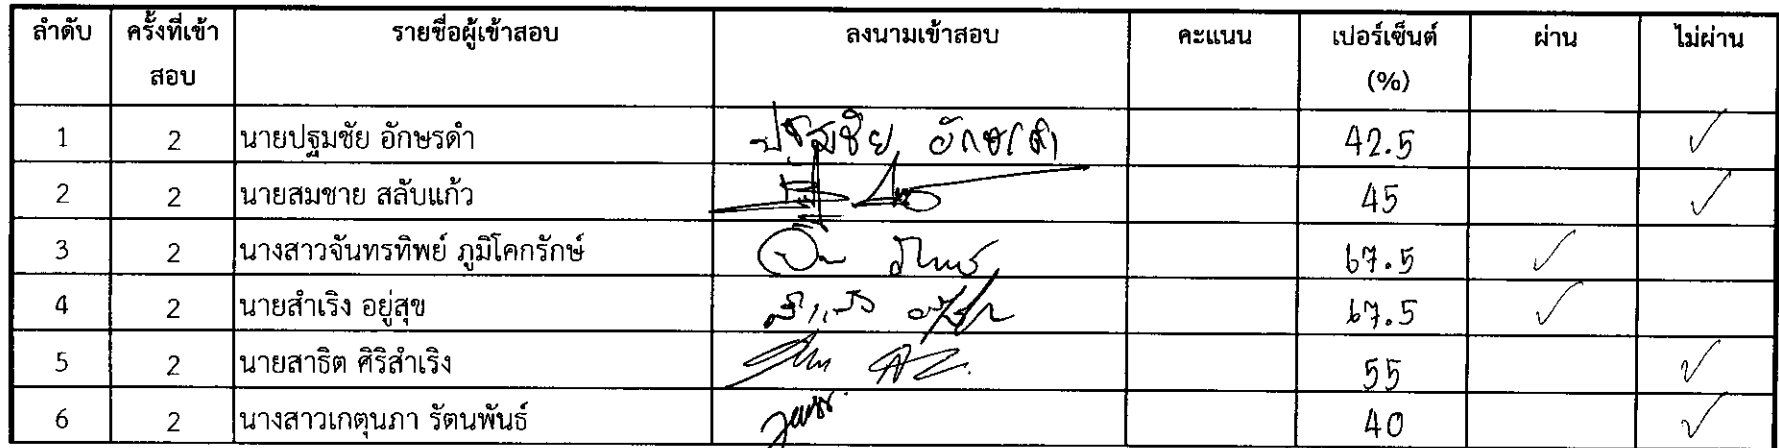 ลำดับ ครั้งที่เข้าสอบ รายชื่อผู้เข้าสอบ ลงนามเข้าสอบ คะแนน เปอร์เซ็นต์ (%) ผ่าน ไม่ผ่าน
1 2 นายปฐมชัย อักษรดำ ปฐมชัย อักษรดำ 42.5 ✓
2 2 นายสมชาย สลับแก้ว 45 ✓
3 2 นางสาวจันทรทิพย์ ภูมิโคกรักษ์ 67.5 ✓
4 2 นายสำเริง อยู่สุข 67.5 ✓
5 2 นายสาธิต ศิริสำเริง 55 ✓
6 2 นางสาวเกตุนภา รัตนพันธ์ 40 ✓